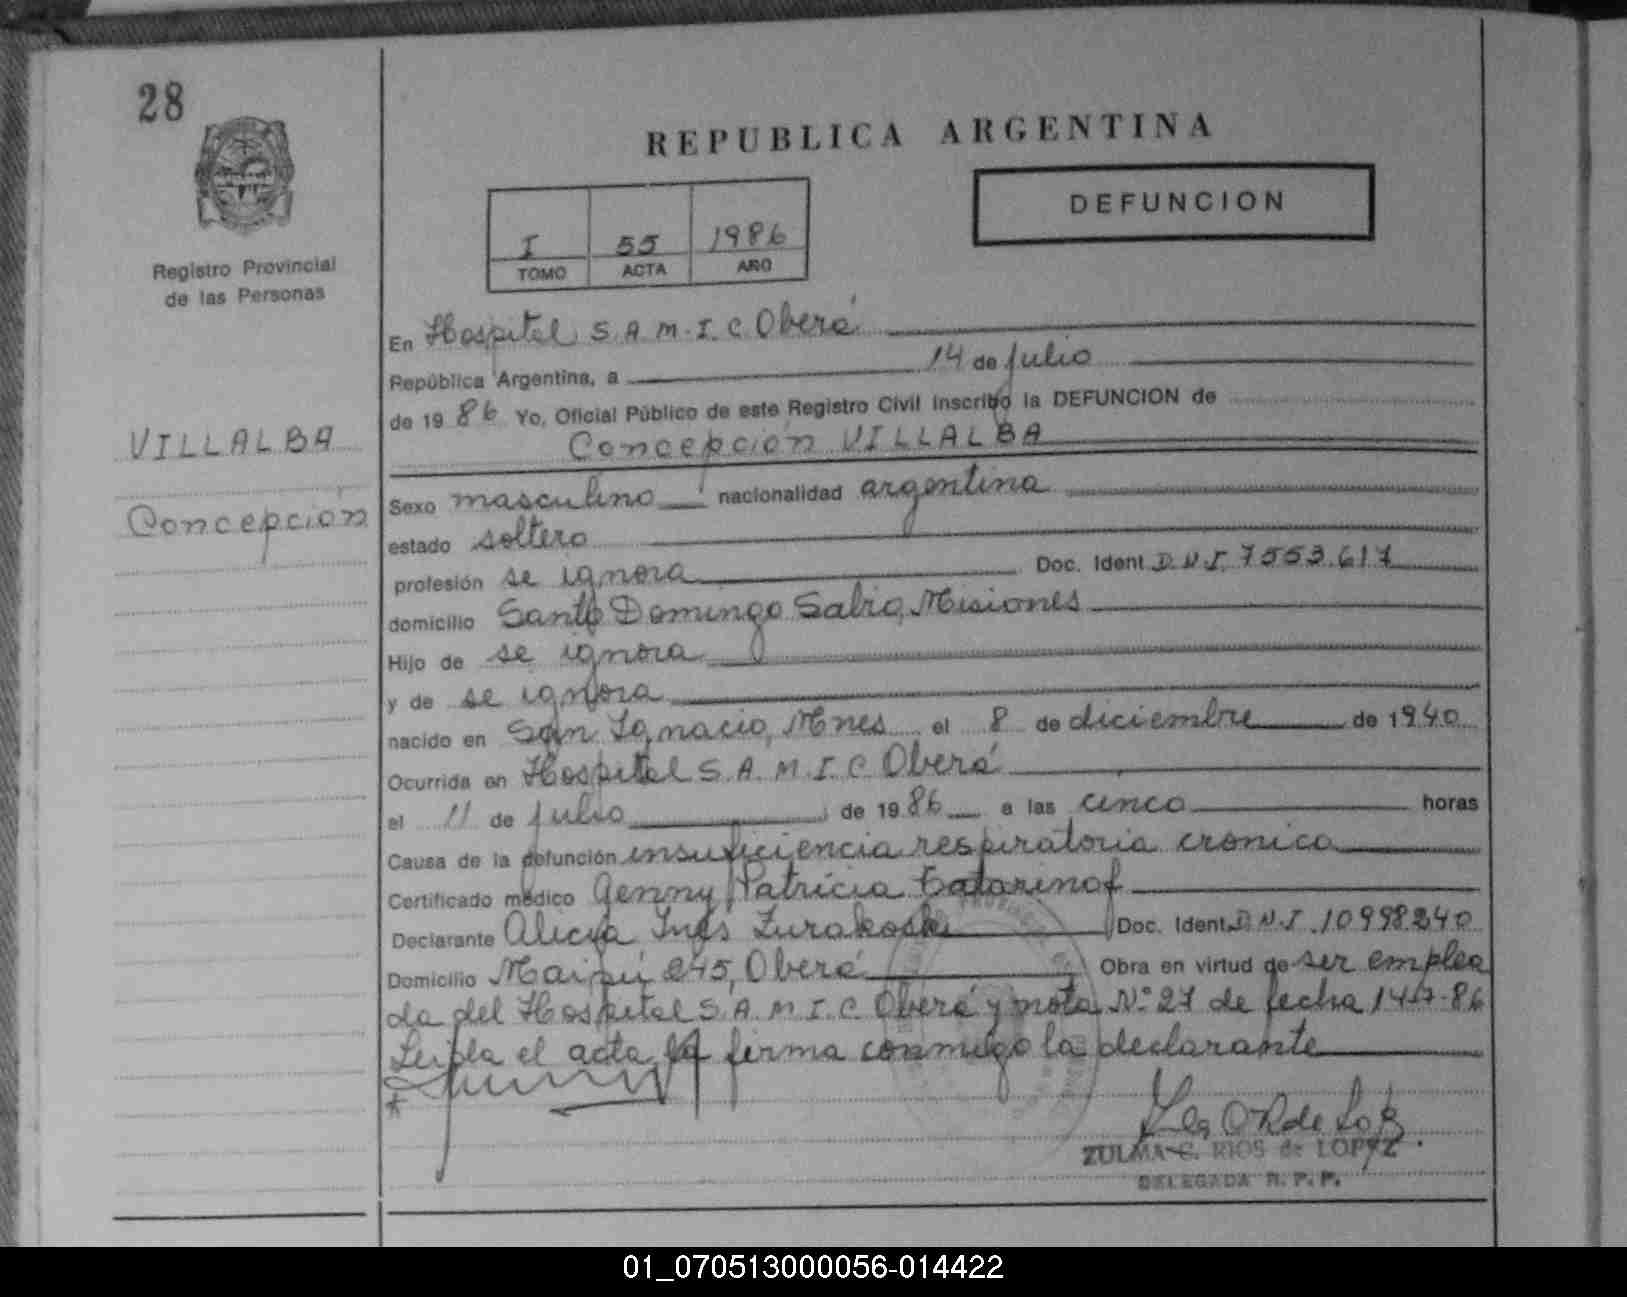 28
REPUBLICA ARGENTINA
DEFUNCION
I 55 1986
TOMO ACTA AÑO
Registro Provincial
de las Personas
VILLALBA
Concepción
En Hospital S.A.M.I.C. Oberá
República Argentina, a 14 de julio
de 1986 Yo, Oficial Público de este Registro Civil inscribo la DEFUNCION de
Concepción VILLALBA
Sexo masculino nacionalidad argentina
estado soltero
profesión se ignora Doc. Ident D.N.I. 7553.617
domicilio Santo Domingo Sabio, Misiones
Hijo de se ignora
y de se ignora
nacido en San Ignacio, Mnes el 8 de diciembre de 1940
Ocurrida en Hospital S.A.M.I.C. Oberá
el 11 de julio de 1986 a las cinco horas
Causa de la defunción insuficiencia respiratoria cronica
Certificado médico Genny Patricia
Declarante Alicia Inés Zurakoski Doc. Ident D.N.I. 10998240
Domicilio Maipú 245, Oberá Obra en virtud de ser emplea
da del Hospital S.A.M.I.C. Oberá y nota N° 27 de fecha 14-7-86
Leída el acta la firma conmigo la declarante
ZULMA C. RIOS de LOPEZ
DELEGADA R.P.P.
01_070513000056-014422